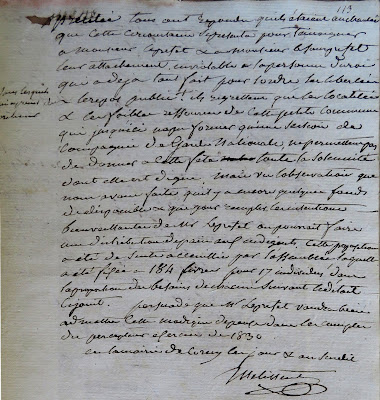 113
tous ont repondu qu'ils étaient enchantés
que cette circonstance se présenta pour témoigner
a Monsieur le prefet & a Monsieur le sous prefet
leur attachement inviolable a la personne du roi
qui a deja tant fait pour l'ordre la liberté
& le repos public! ils regrettent que la localité
& les faibles ressources de cette petite commune
qui jusqu'ici n'a pu former qu'une section de
Compagnie de Garde Nationale ne permettent pas
de donner a cette fête toute la solemnité
dont elle est digne. Mais sur l'observation que
nous avons faite qu'il y a encore quelques fonds
de disponibles & que pour remplir les intentions
bienveillantes de Mr le prefet on pourrait faire
une distribution de pain aux indigents, cette proposition
a été de suite accueillie par l'assemblée laquelle
a été fixée a 184 livres pour 17 individus dans
la proportion des besoins de chacun suivant l'état
cyjoint. persuadé que Mr le prefet voudra bien
admettre cette modique depense dans les comptes
du percepteur exercice de 1830
en la mairie de les jour & an susdits